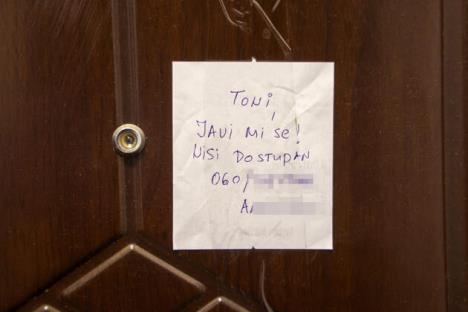 TONI,
JAVI MI SE!
NISI DOSTUPAN
060/
A